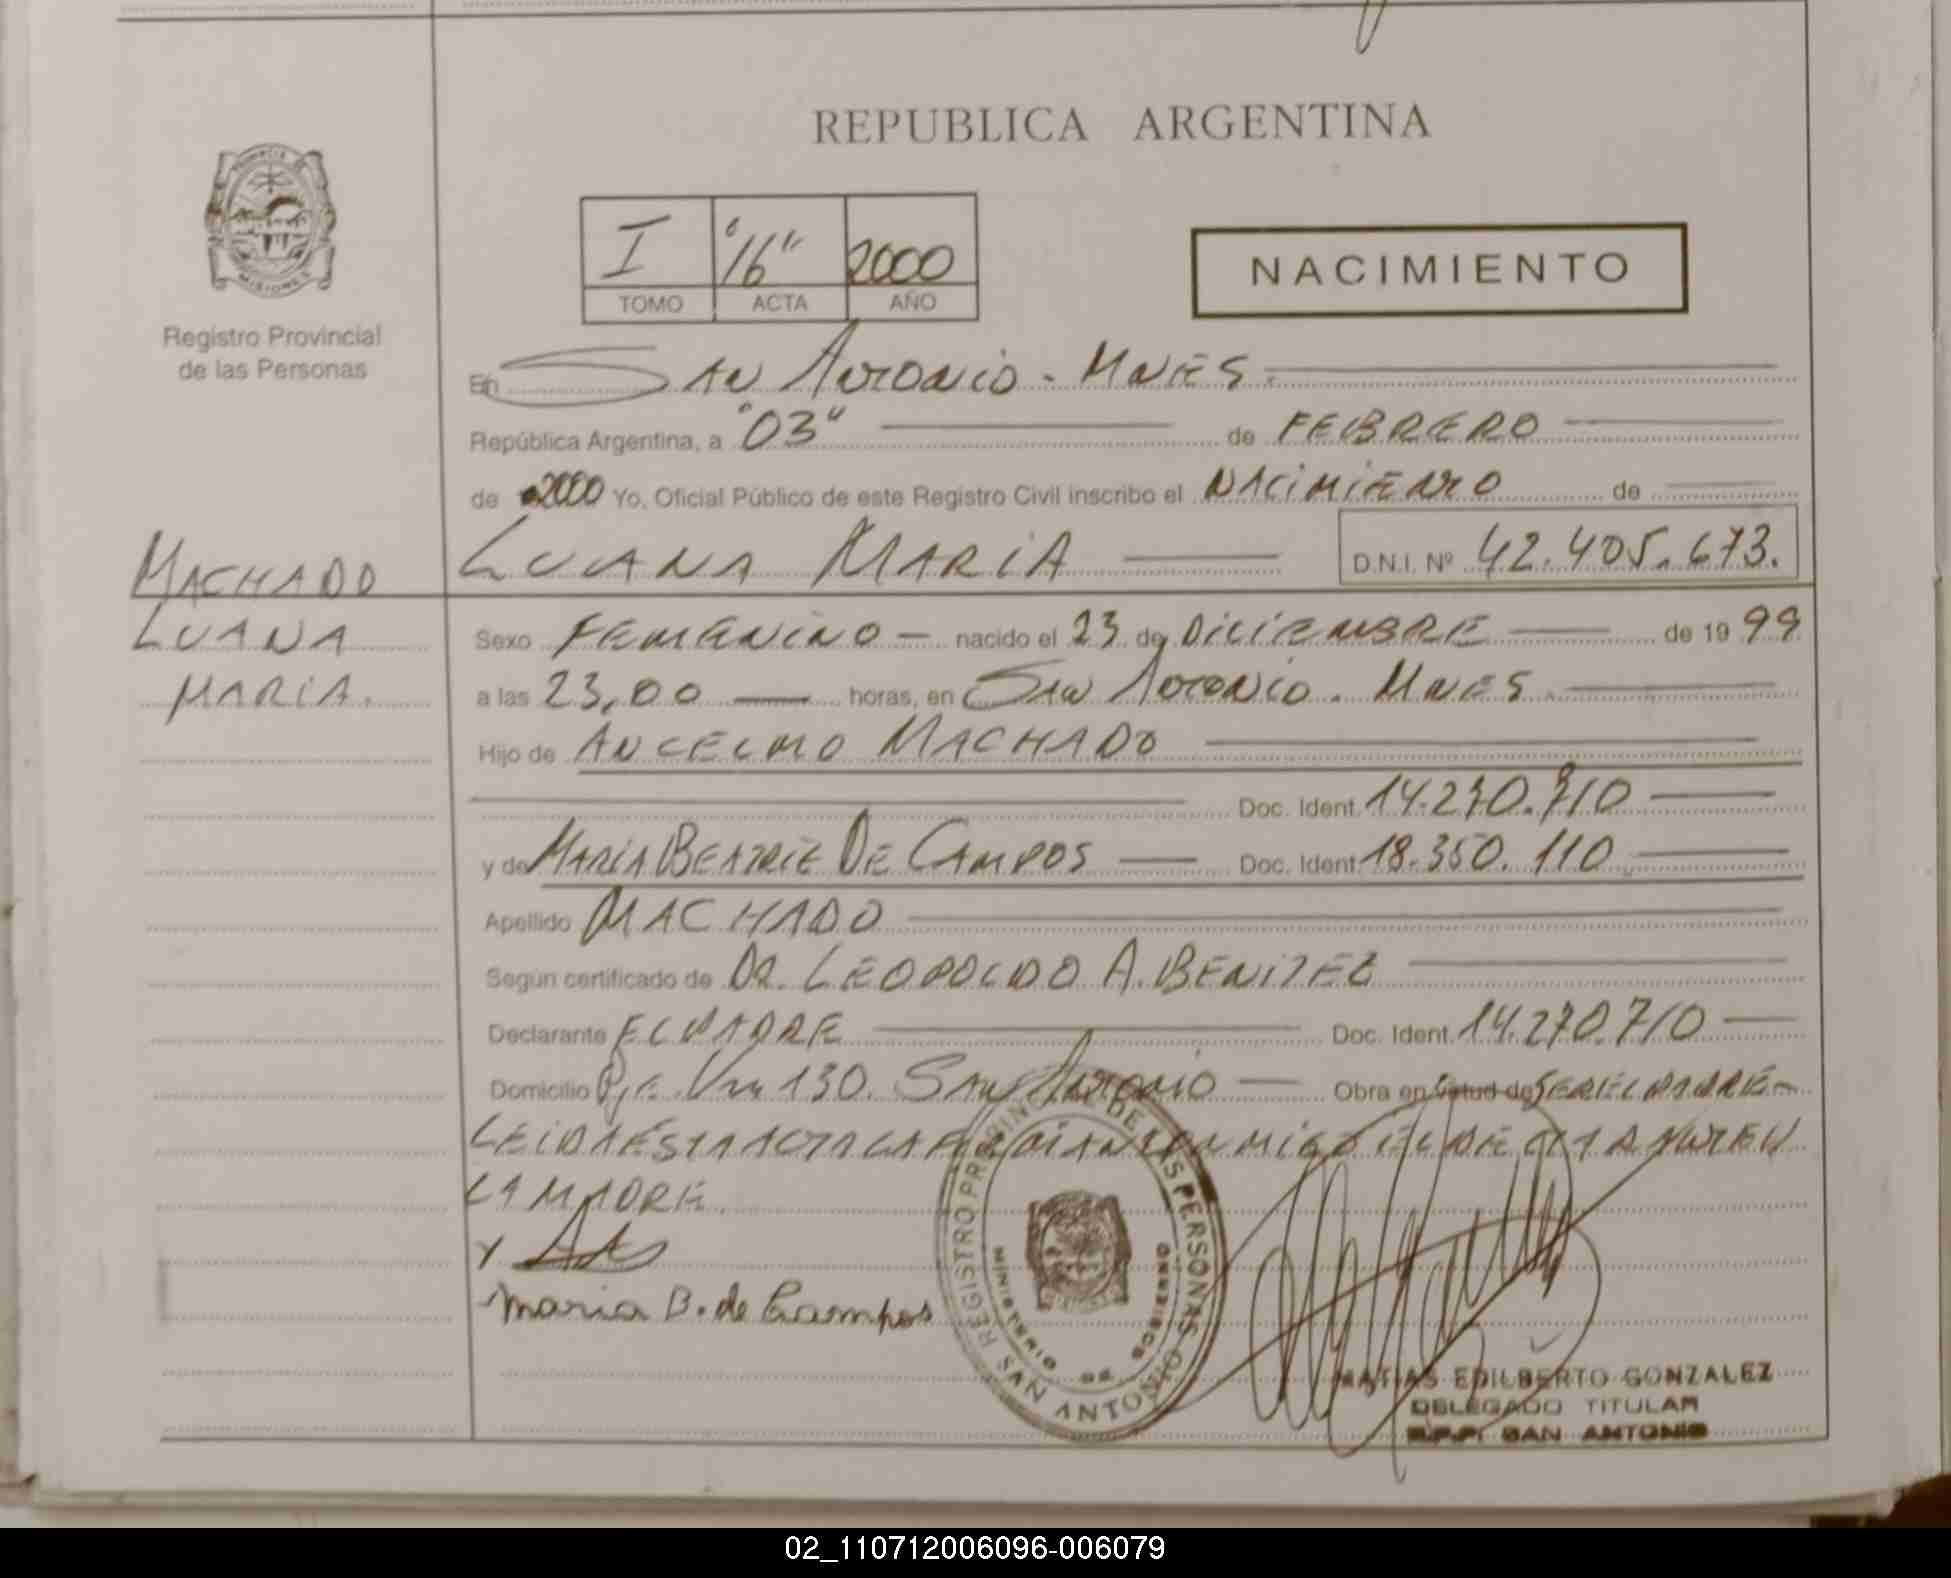 REPUBLICA ARGENTINA
PROVINCIA DE MISIONES
Registro Provincial
de las Personas
I "16" 2000
TOMO ACTA AÑO
NACIMIENTO
En SAN ANTONIO - MNES.
República Argentina, a "03" de FEBRERO
de 2000 Yo, Oficial Público de este Registro Civil inscribo el NACIMIENTO de
LUANA MARIA D.N.I. Nº 42.405.673.
MACHADO
LUANA
MARIA.
Sexo FEMENINO nacido el 23 de DICIEMBRE de 19 99
a las 23,00 horas, en SAN ANTONIO. MNES.
Hijo de ANCELMO MACHADO
Doc. Ident. 14.270.710
y de MARIA BEATRIZ DE CAMPOS Doc. Ident. 18.350.110
Apellido MACHADO
Según certificado de DR. LEOPOLDO A. BENITEZ
Declarante EL PADRE Doc. Ident. 14.270.710
Domicilio Pje. Km 130. SAN ANTONIO Obra en virtud de SER EL PADRE
LEIDA ESTA ACTA LA FIRMAN CONMIGO EL DECLARANTE Y
LA MADRE.
Maria B. de Campos
REGISTRO PROVINCIAL DE LAS PERSONAS
MINISTERIO DE GOBIERNO
SAN ANTONIO
MATIAS EDILBERTO GONZALEZ
DELEGADO TITULAR
R.P.P. SAN ANTONIO
02_110712006096-006079